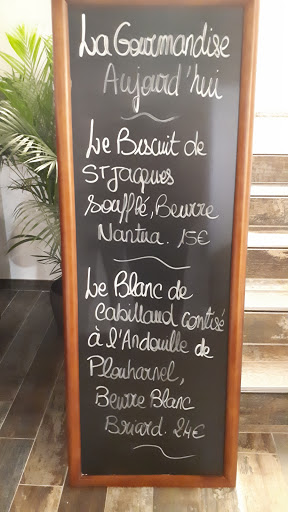 La Gourmandise
Aujourd'hui
Le Biscuit de
St Jacques
Soufflé, Beurre
Nantua. 15€
Le Blanc de
Cabillaud contisé
à l'Andouille de
Plouharnel,
Beurre Blanc
Briard. 24€